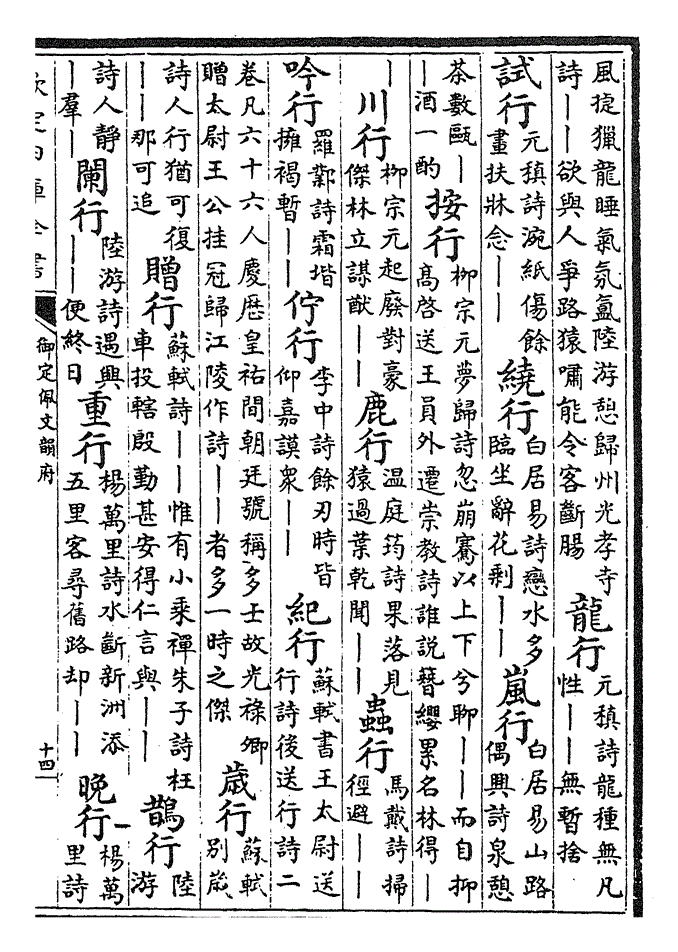 風捷獵龍睡氣氛氲陸游憩歸州光孝寺
詩——欲與人爭路猿嘯能令客斷腸
龍行
元稹詩龍種無凡
性——無暫捨
試行
元稹詩涴紙傷餘
畫扶牀念——
繞行
白居易詩戀水多
臨坐辭花剩——
嵐行
白居易山路
偶興詩泉憩
茶數甌—
—酒一酌
按行
柳宗元夢歸詩忽崩騫以上下兮聊——而自抑
高啓送王員外遷崇教詩誰説簪纓累名林得—
—
川行
柳宗元起廢對豪
傑林立謀猷——
鹿行
温庭筠詩果落見
猿過葉乾聞——
蟲行
馬戴詩掃
徑避——
吟行
羅鄴詩霜堦
擁褐暫——
佇行
李中詩餘刃時皆
仰嘉謨衆——
紀行
蘇軾書王太尉送
行詩後送行詩二
卷凡六十六人慶歴皇祐間朝廷號稱多士故光祿卿
贈太尉王公挂冠歸江陵作詩——者多一時之傑
歳行
蘇軾
别歳
詩人行猶可復
——那可追
贈行
蘇軾詩——惟有小乘禪朱子詩枉
車投轄殷勤甚安得仁言與——
鵲行
陸
游
詩人靜
——羣—
闌行
陸游詩遇興
——便終日
重行
楊萬里詩水斷新洲添
五里客尋舊路却——
晚行
楊萬
里詩
欽定四庫全書
御定佩文韻府
十四